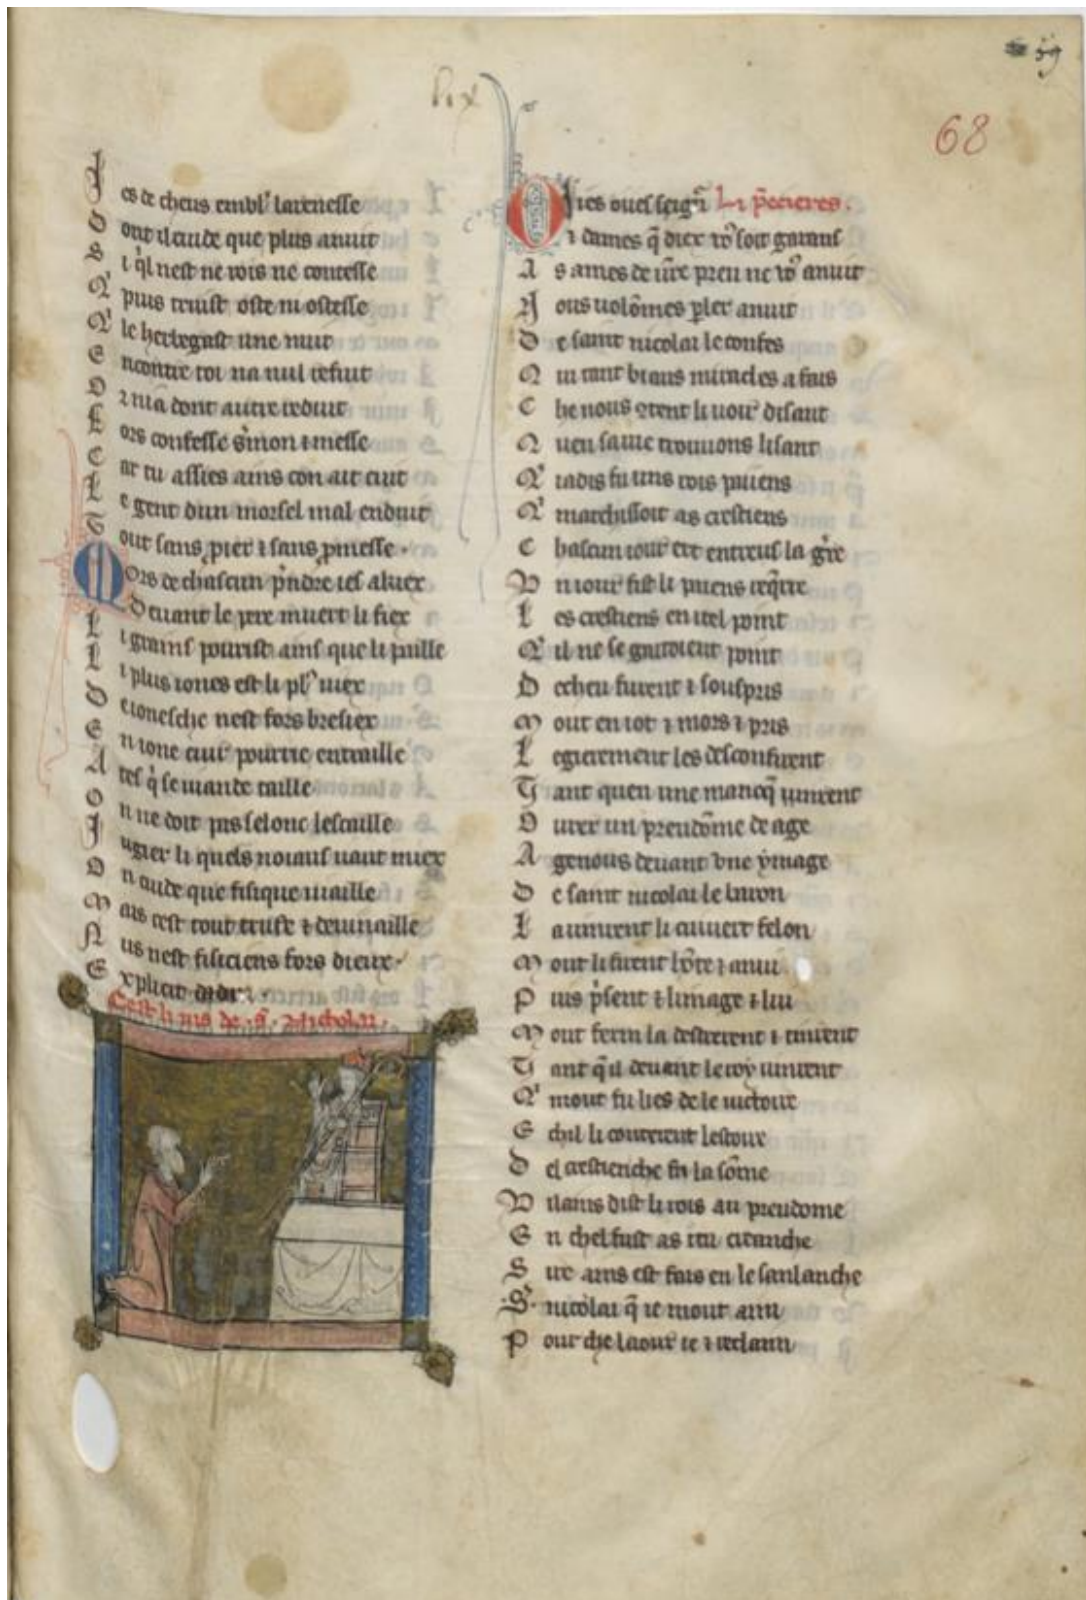 68
I es de cheus embl' larenesse
D ont il cuide que plus anuit
S i q'l nest ne rois ne contesse
Q' puis truist oste ni ostesse
Q' le herbegast une nuit
E ncontre toi na nul refuit
N i a dont autre reduit
F ors confesse s'mon ⁊ messe
C ar tu assies ains con ait cuit
L e gent dun morsel mal enduit
T out sans prier ⁊ sans pmesse .
Mors de chascun p'ndre ies aluer
D euant le pere muert li fiex
L i grains pourist ains que li paille
L i plus iones est li pl' uiex
D e ionesche nest fors bresiex
E n ione cuir pourrie entraille
A tes q' se uiande taille
O n ne doit pas selonc lescaille
I ugier li quels noiaus uaut miex
O n cuide que fisique uaille
M ais cest tout truffe ⁊ deuinaille
N us nest fisiciens fors dieux .
E xplicit
Cest li ius de .s. Nicholai .
Oies oies seign' Li p̄ecieres .
⁊ dames q̄ diex vo' soit garans
A s ames de ūre preu ne vo' anuit
N ous uolōmes pler anuit
D e saint nicolai le confes
Q ui tant biaus miracles a fais
C he nous 9tent li uoir disant
Q uen sa uie trouuons lisant
Q' iadis fu uns rois paiens
Q' marchissoit as crestiens
C hascun iour ert entreus la g're
V n iour fist li paiens req're
L es crestiens en itel point
Q' il ne se gaitoient point
D echeu furent ⁊ souspris
M out en i ot ⁊ mors ⁊ pris
L egierement les desconfirent
T ant quen une manoq̄ uinrent
O urer un preudōme de age
A genous deuant vne ymage
D e saint nicolai le baron
L a uinrent li cuuert felon
M out li firent hōte ⁊ anui
P uis p'sent ⁊ limage ⁊ lui
M out ferm la destrerent ⁊ tinrent
T ant q̄il deuant le roy uinrent
Q' mout fu lies de le uictoire
E chil li conterent lestoire
D el crestienche fu la sōme
V ilains dist li rois au preudome
E n chel fust as itu creanche
S ire ains est fais en le sanlanche
.S'. nicolai q̄ ie mout aim
P our che laour ie ⁊ reclaim